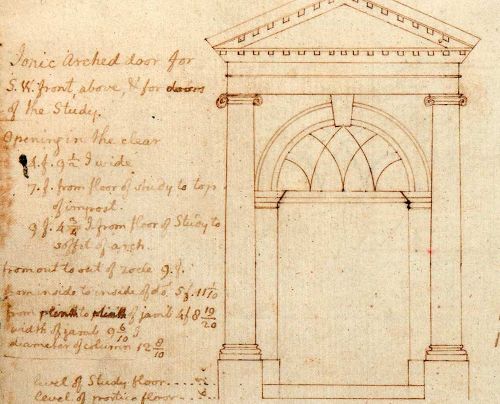 Ionic Arched door for
S.W. front above, & for doors
of the Study.
Opening in the clear
4.f. 9½ I wide
7.f. from floor of study to top
of impost.
9f. 4¾ I from floor of Study to
soffit of arch.
from out to out of zocle 9.f.
from inside to inside of do. 5f. 11 1/10
from plinth to plinth of jamb 4f 8 19/20
width of jamb 9 6/10 I
diameter of column 12 8/10
level of Study floor
level of portico floor